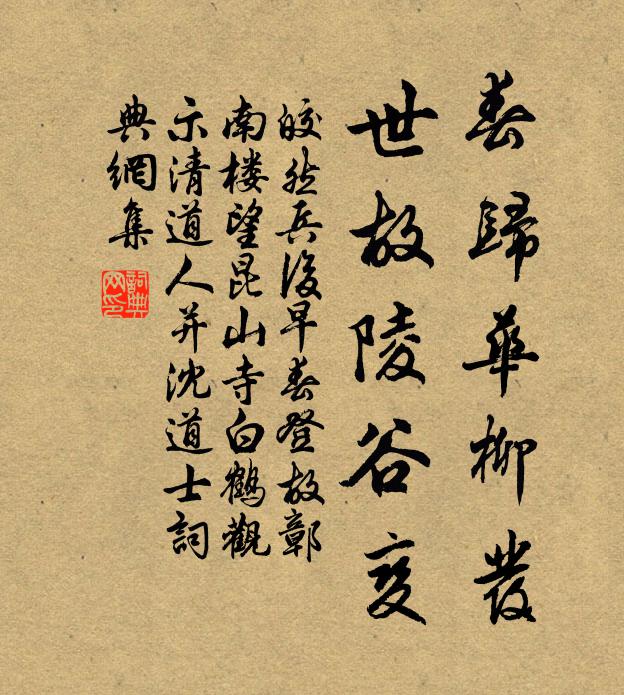 春歸華柳發
世故陵谷变
皎然兵後早春登故鄣
南楼望昆山寺白鶴觀
示清道人并沈道士詞
典網集
詞典网印